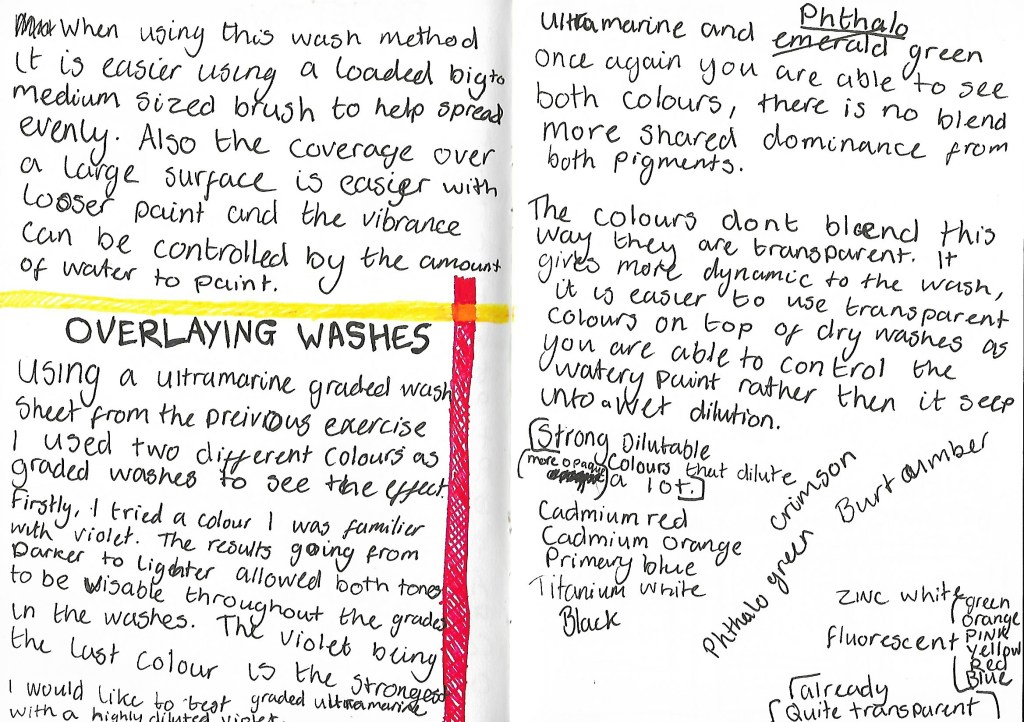 When using this wash method
it is easier using a loaded big to
medium sized brush to help spread
evenly. Also the coverage over
a large surface is easier with
looser paint and the vibrance
can be controlled by the amount
of water to paint.
OVERLAYING WASHES
Using a ultramarine graded wash
Sheet from the preivious exercise
I used two different colours as
graded washes to see the effect.
Firstly, I tried a colour I was familier
with violet. The results going from
Darker to lighter allowed both tones
to be visable throughout the grades
in the washes. The violet being
the last colour is the strongest
I would like to test graded ultramarine
with a highly diluted violet.
Phthalo
ultramarine and emerald green
once again you are able to see
both colours, there is no blend
more shared dominance from
both pigments.
The colours dont blend this
way they are transparent. It
gives more dynamic to the wash,
it is easier to use transparent
colours on top of dry washes as
you are able to control the
watery paint rather then it seep
unto a wet dilution.
Strong Dilutable
more opaque colours that dilute
a lot.
Cadmium red
Cadmium orange
Primary blue
Titanium white
Black
Phthalo green
crimson
Burt aumber
ZINC white
fluorescent
green
orange
PINK
yellow
Red
Blue
already
Quite transparent